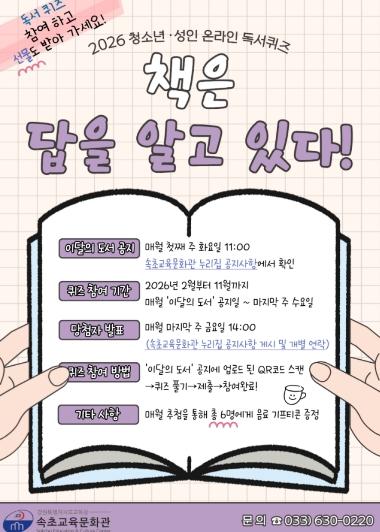 독서 퀴즈
참여 하고
선물도 받아 가세요!
2026 청소년·성인 온라인 독서퀴즈
책은
답을 알고 있다!
이달의 도서 공지
매월 첫째 주 화요일 11:00
속초교육문화관 누리집 공지사항에서 확인
퀴즈 참여 기간
2026년 2월부터 11월까지
매월 '이달의 도서' 공지일 ~ 마지막 주 수요일
당첨자 발표
매월 마지막 주 금요일 14:00
(속초교육문화관 누리집 공지사항 게시 및 개별 연락)
퀴즈 참여 방법
'이달의 도서' 공지에 업로드 된 QR코드 스캔
→퀴즈 풀기→제출→참여완료!
기타 사항
매월 추첨을 통해 총 6명에게 음료 기프티콘 증정
강원특별자치도교육청
속초교육문화관
문의 ☎033) 630-0220